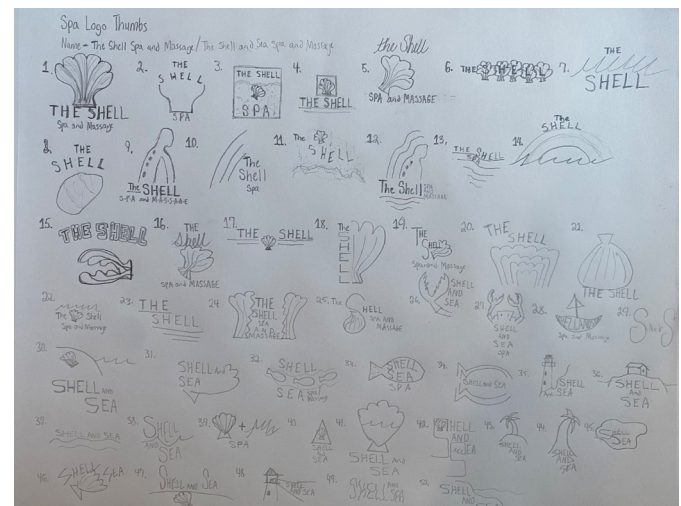 Spa Logo Thumbs
Name - The Shell Spa and Massage/The Shell and Sea Spa and Massage
the Shell
1. THE SHELL
Spa and Massage
2. THE
SHELL
SPA
3. THE SHELL
SPA
4. THE SHELL
5. SPA and MASSAGE
6. THE SHELL
7. THE
SHELL
8. THE
SHELL
9. The SHELL
SPA and MASSAGE
10. The
Shell
Spa
11. The
SHELL
12. The Shell
SPA
AND
MASSAGE
13. THE SHELL
14. The
SHELL
15. THE SHELL
16. THE
Shell
SPA and MASSAGE
17. THE SHELL
18. The
SHELL
19. The
SHELL
Spa and Massage
20. THE
SHELL
21. THE SHELL
22. The Shell
Spa and Massage
23. THE
SHELL
24. THE
SHELL
SPA
AND
MASSAGE
25. The SHELL
SPA AND
MASSAGE
26. SHELL
AND
SEA
27. SHELL
AND
SEA
SPA
28. SHELL AND SEA
Spa and Massage
29. S S
30. SHELL AND
SEA
31. SHELL AND
SEA
32. SHELL
SEA
33. SHELL
SEA
SPA
34. SHELL AND SEA
35. SHELL
AND SEA
36. SHELL
AND
SEA
37. SHELL AND SEA
38. SHELL
AND
SEA
39. +
SPA
40. SHELL
AND
SEA
41. SHELL AND
SEA
42. SHELL
AND
SEA
43. SHELL
AND
SEA
44. SHELL
AND
SEA
45. SHELL
SEA
46. SHELL SEA
47. SHELL AND SEA
48. SHELL
AND SEA
49. SHELL AND
SEA
50. SHELL AND
SEA